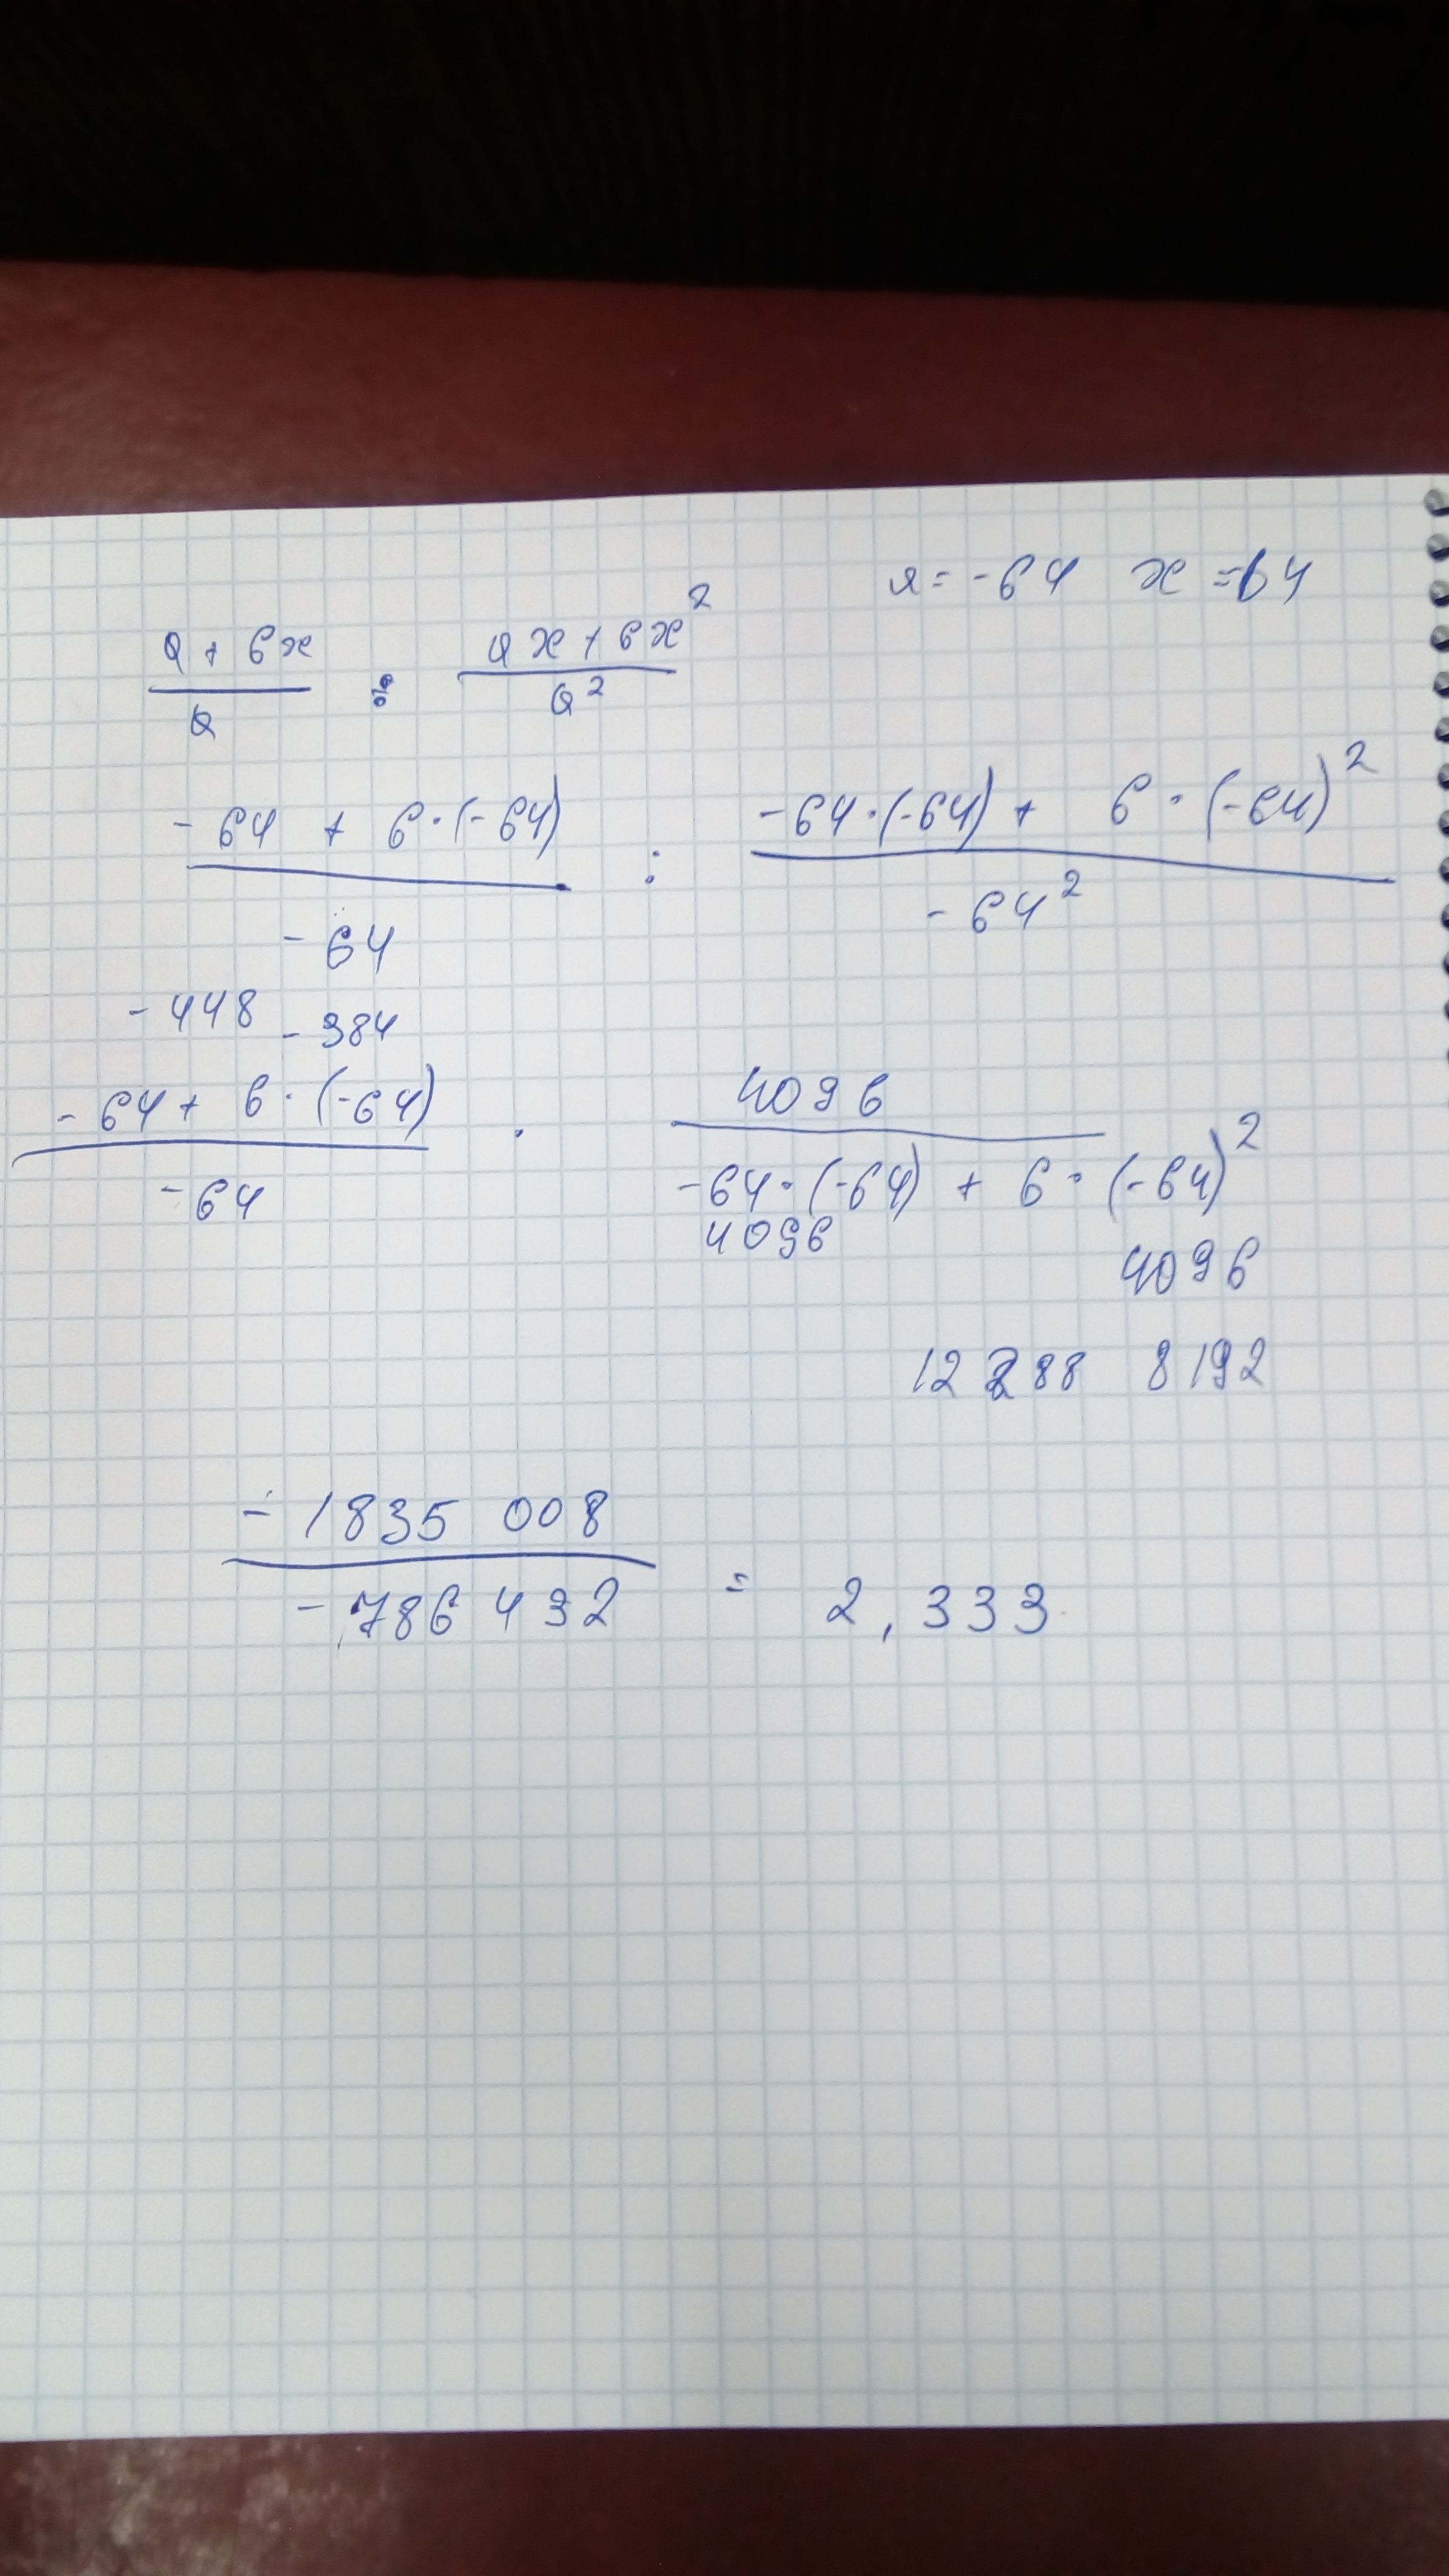 a = -64 x = 64
a + 6x : ax + 6x²
a a²
-64 + 6·(-64) : -64·(-64) + 6·(-64)²
-64 -64²
-448 -384
-64 + 6·(-64) · 4096
-64 -64·(-64) + 6·(-64)²
4096 4096
12288 8192
-1835 008
-786 432 = 2,333